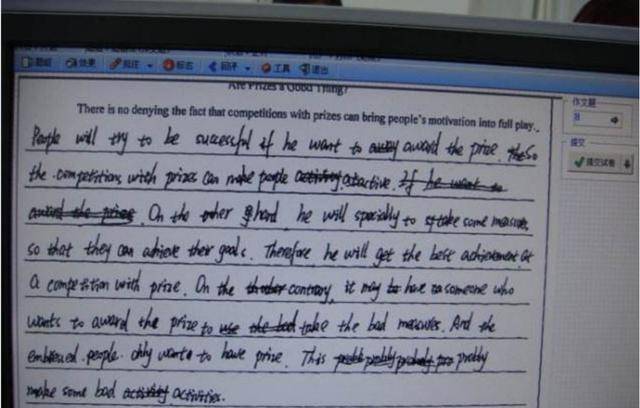 批注 标志 回评 工具 退出
Are Prizes a Good Thing?
作文题
提交
提交试卷
There is no denying the fact that competitions with prizes can bring people's motivation into full play.
People will try to be successful if he want to award the prize. So
the competitions with prizes can make people active.
On the other hand he will specially to take some measures,
so that they can achieve their goals. Therefore he will get the best achievement at
a competition with prize. On the contrary, it may have someone who
wants to award the prize to take the bad measures. And the
people only wants to have prize. This probbly
make some bad activities.